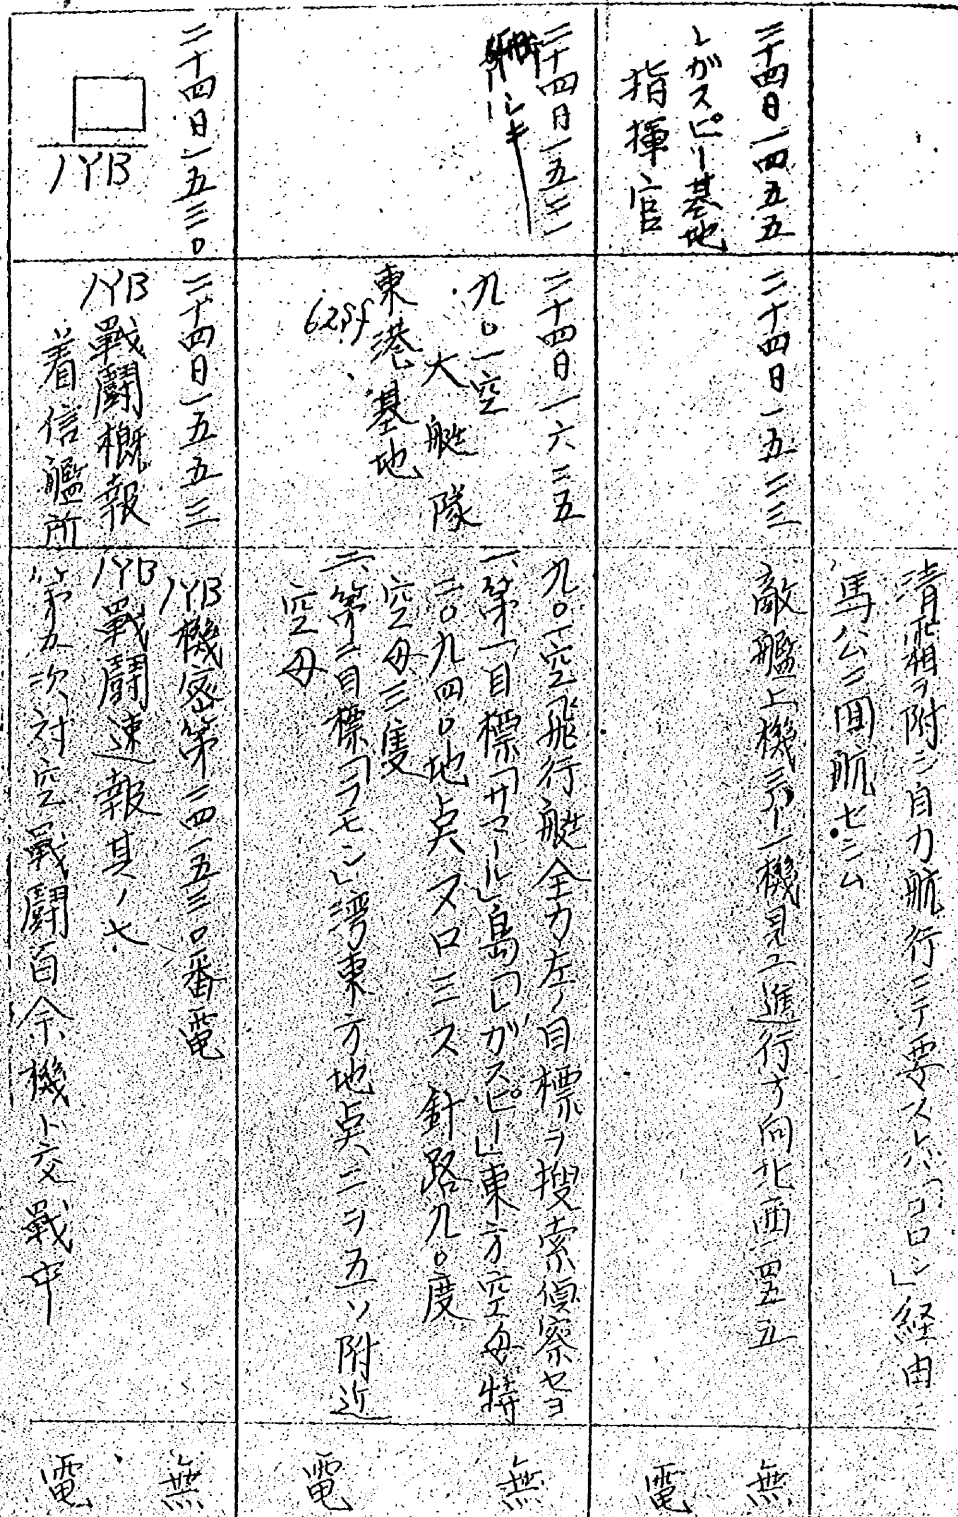 清霜ヲ附シ自力航行ニテ要スレバ「コロン」経由
馬公ニ回航セシム
二十四日一四五五
レガスピー基地
指揮官
二十四日一五三三
敵艦上機三〇一機見ユ進行方向北西一四五五
無
電
二十四日一五三一
二十四日一六三五
九〇一空
大艇隊
東港基地
62Sf
九〇一空飛行艇全力左ノ目標ヲ捜索偵察セヨ
一、第一目標「サマール」島「レガスピー」東方空母特
二〇九四〇地点ヌロ三ス針路九〇度
空母三隻
二、第二目標「ラモン」湾東方地点ニヲ五ソ附近
空母
無
電
二十四日一五三〇
1YB
二十四日一五五三
1YB戦闘概報
着信艦所
1YB機密第二四一五三〇番電
1YB戦闘速報其ノ七
第五次対空戦闘百余機ト交戦中
無
電